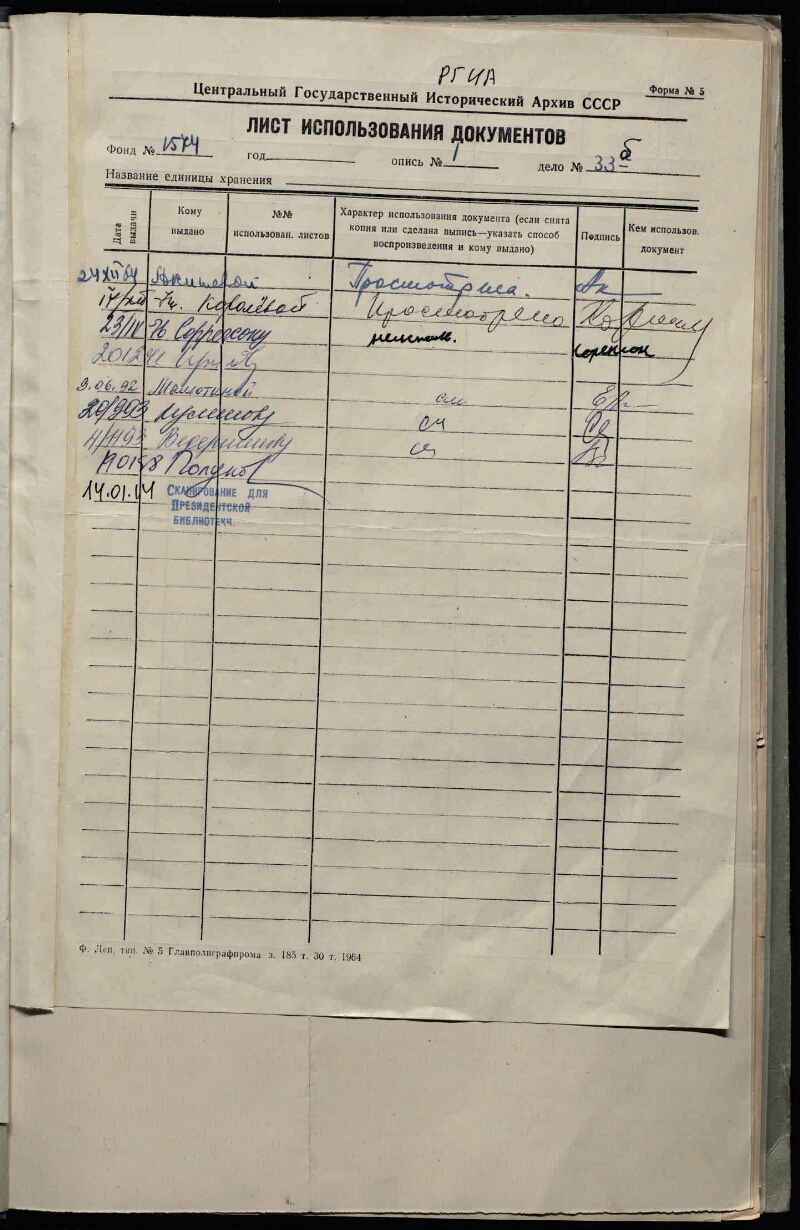 РГИА
Форма № 5
Центральный Государственный Исторический Архив СССР
ЛИСТ ИСПОЛЬЗОВАНИЯ ДОКУМЕНТОВ
Фонд № 1574 год опись № 1 дело № 33 б
Название единицы хранения
Дата выдачи
Кому выдано
№№ использован. листов
Характер использования документа (если снята копия или сделана выпись—указать способ воспроизведения и кому выдано)
Подпись
Кем использов. документ
Просмотрела.
Ковалёвой Просмотрено
23/IV
9.06.92 см
20/I 93 см
Ведерникову см
Полунов
14.01.14 СКАНИРОВАНИЕ ДЛЯ
ПРЕЗИДЕНТСКОЙ
БИБЛИОТЕКИ.
Ф. Лен. тип. № 5 Главполиграфпрома з. 185 т. 30 т. 1964